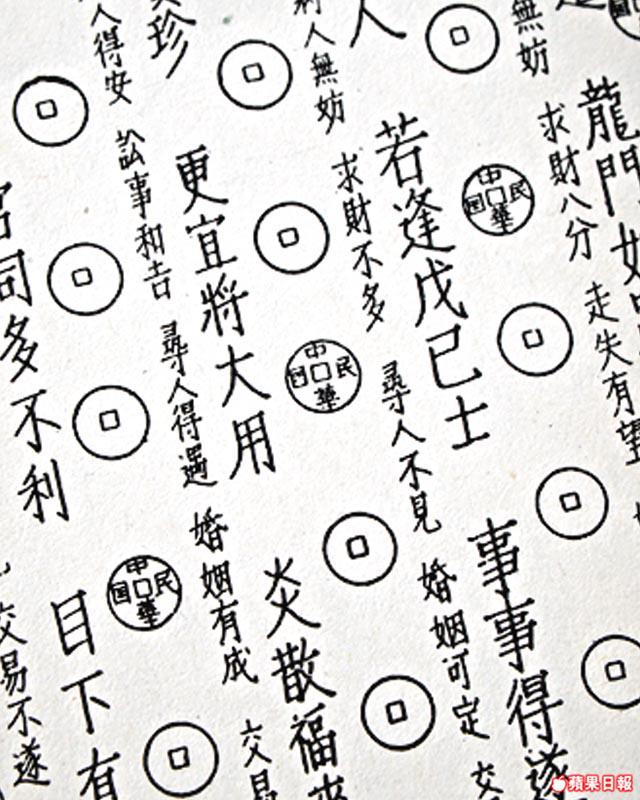 龍門
無妨 求財八分 走失有望
中華民囯
人 若逢戊已士 事事得遂
人無妨 求財不多 尋人不見 婚姻可定 交
中華民囯
珍 更宜將大用 炎散福來
人得安 訟事和吉 尋人得遇 婚姻有成 交易
中華民囯
司多不利 目下有
交易不遂
蘋果日報